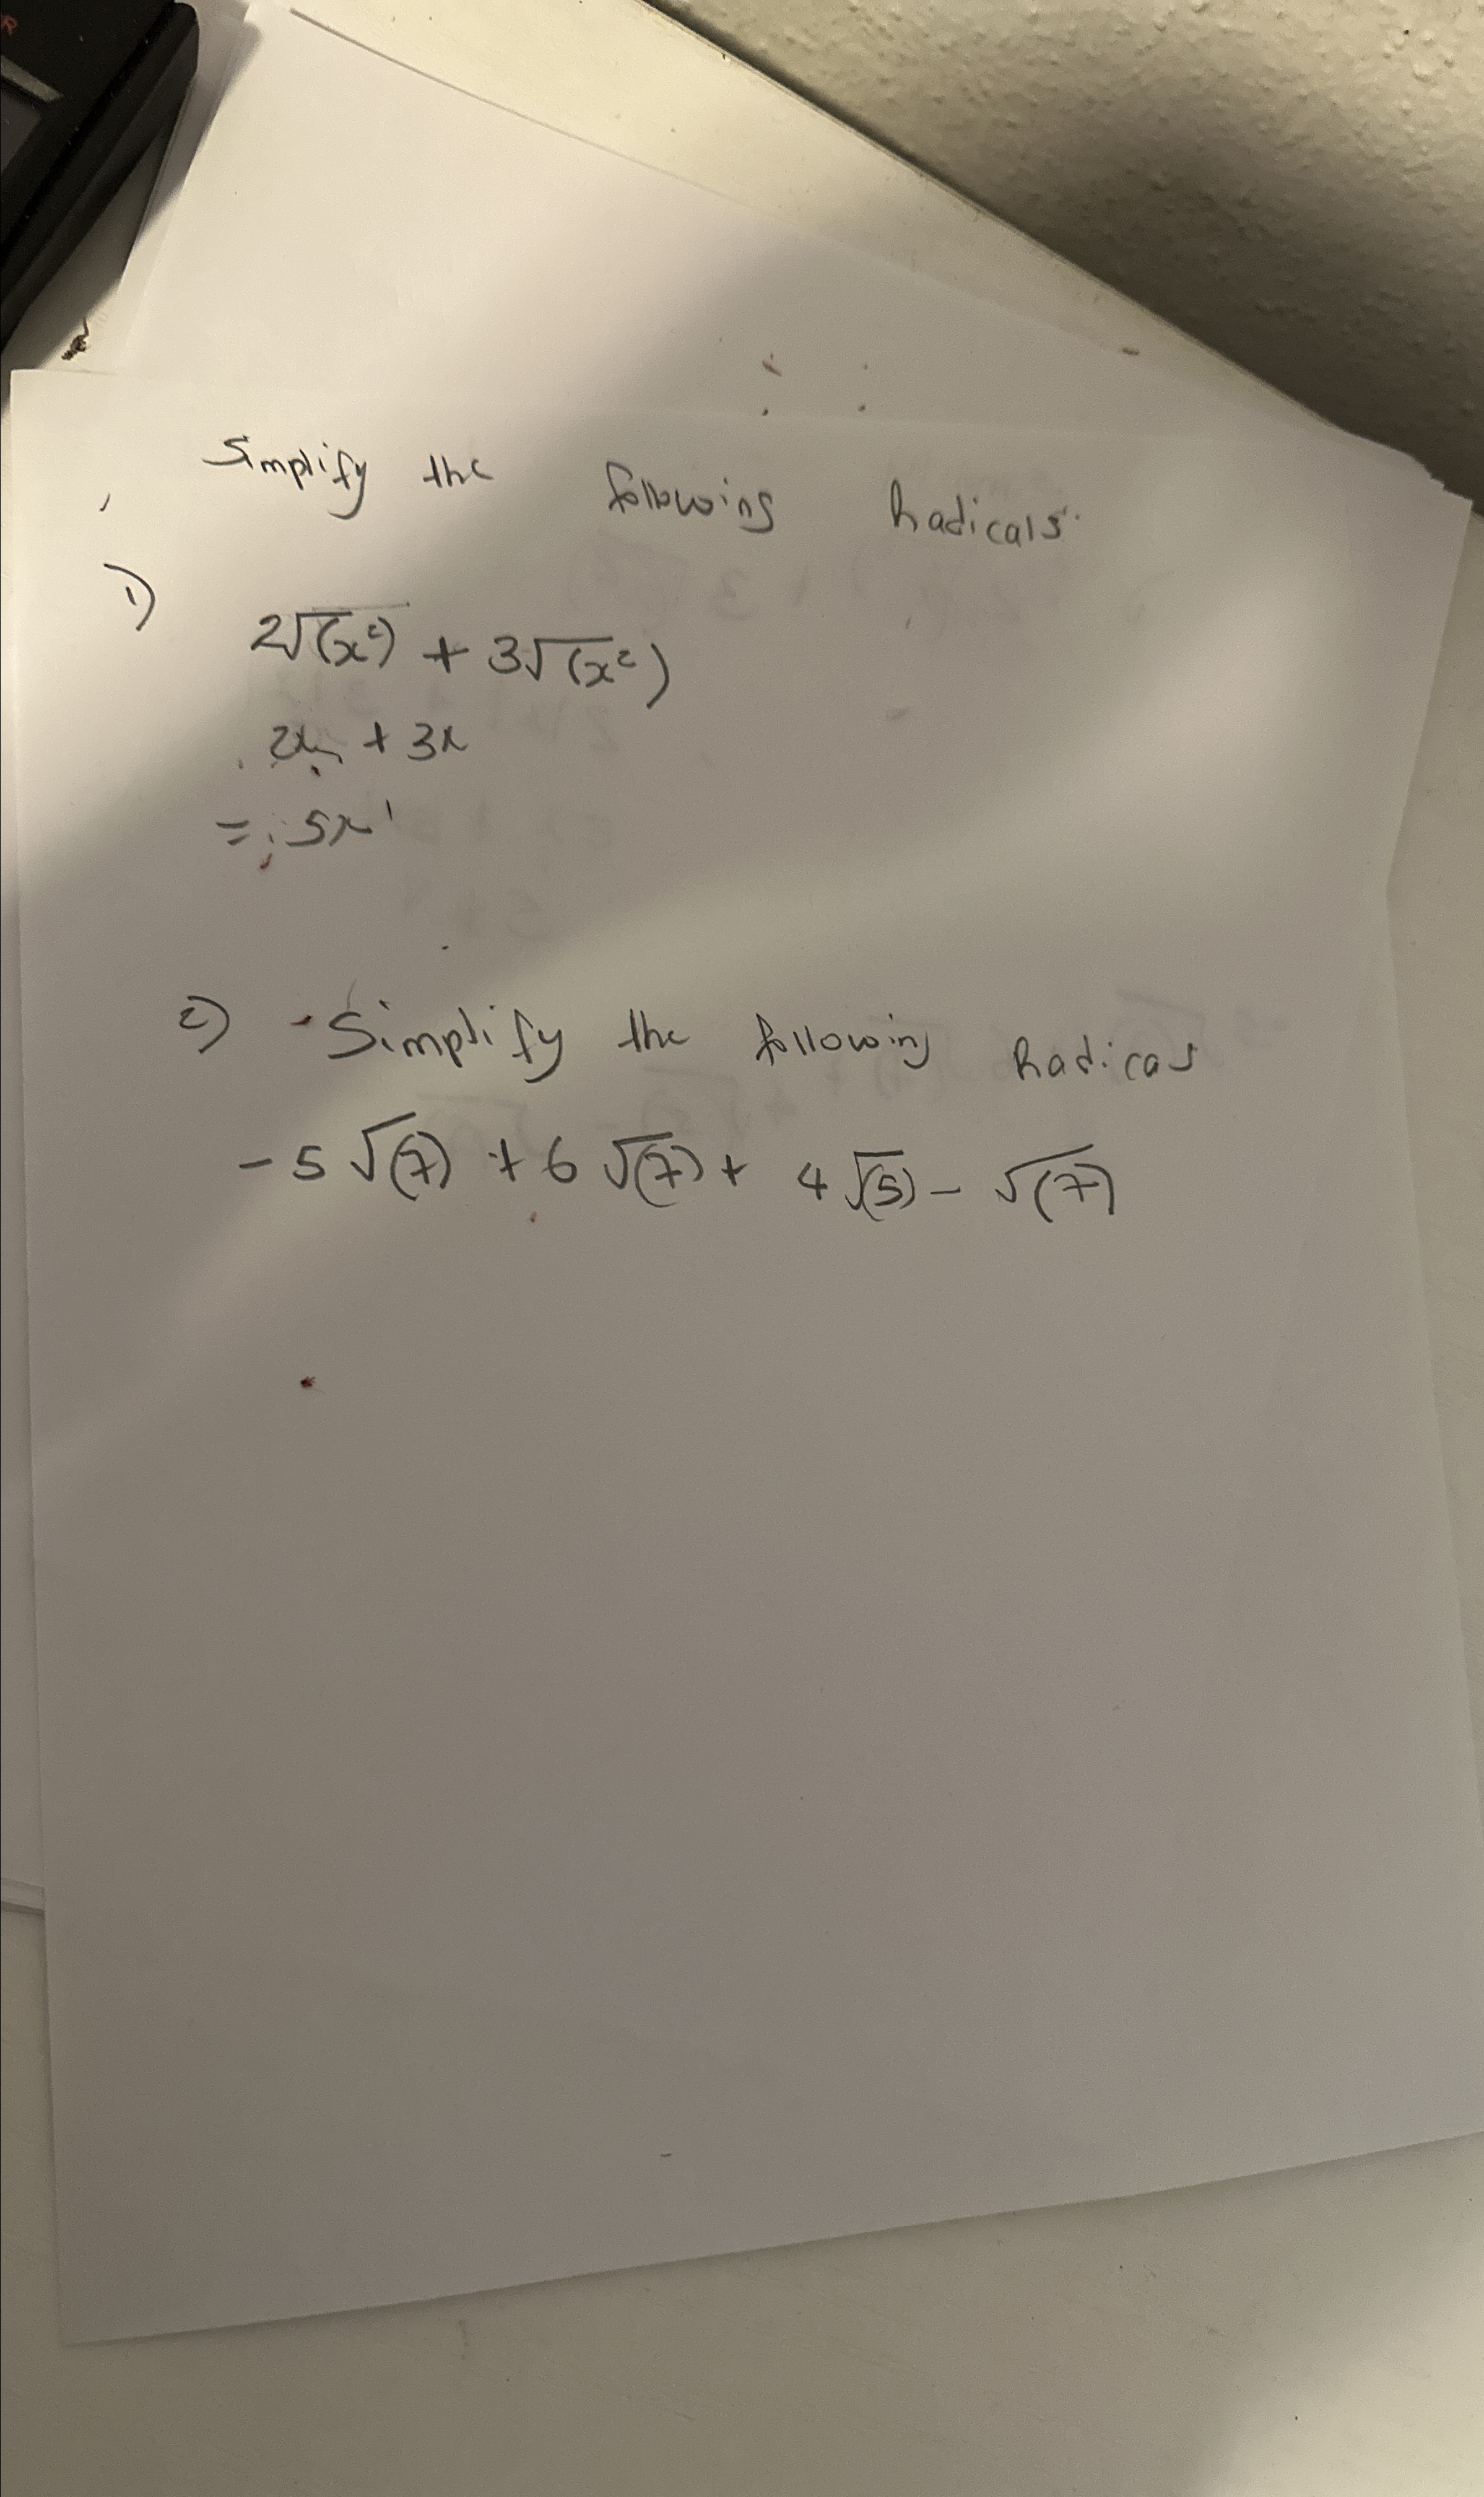 Simplify the following Radicals.
1)
2√(x²) + 3√(x²)
2x + 3x
= 5x
2) Simplify the following Radicas
-5 √(7) + 6 √(7) + 4 √(5) - √(7)